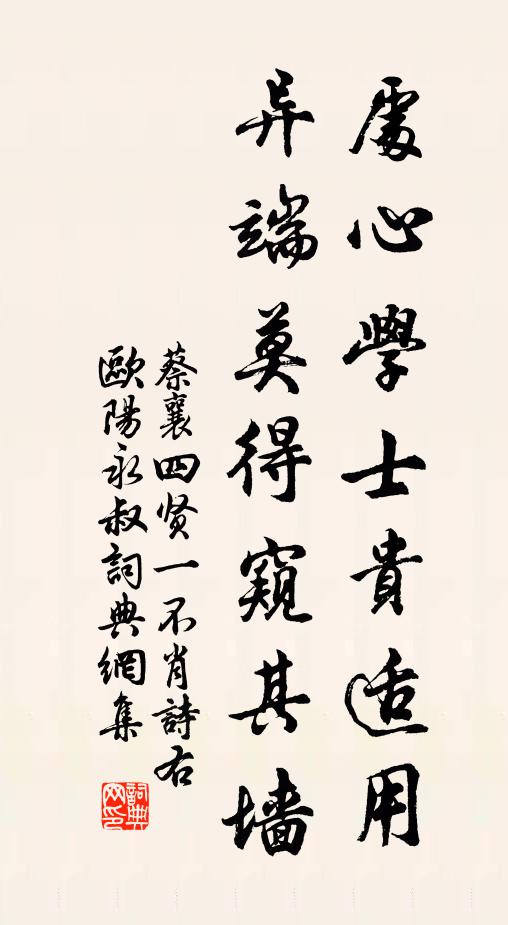 處心學士貴适用
异端莫得窺其墙
蔡襄四贤一不肖詩右
歐陽永叔詞典網集
詞典网印